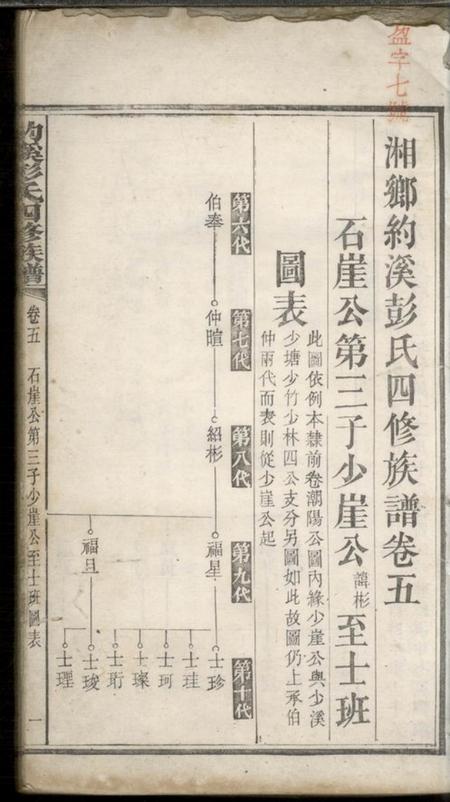 盈字七號
湘鄉約溪彭氏四修族譜卷五
石崖公第三子少崖公諱彬至士班
圖表
此圖依例本隸前卷潮陽公圖內緣少崖公與少溪
少塘少竹少林四公支分另圖如此故圖仍上承伯
仲兩代而表則從少崖公起
第六代
第七代
第八代
第九代
第十代
伯奉
仲暄
紹彬
福星
士珍
士珪
士珂
士璨
士珩
福旦
士琰
士理
約溪彭氏四修族譜
卷五
石崖公第三子少崖公至士班圖表
一